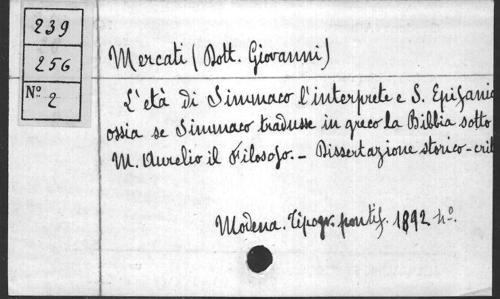 239
256
Nº 2
Mercati (Dott. Giovanni)
L'età di Simmaco l'interprete e S. Epifanio
ossia se Simmaco tradusse in greco la Bibbia sotto
M. Aurelio il Filosofo. — Dissertazione storico-crit
Modena. Tipogr. pontif. 1892 4º.